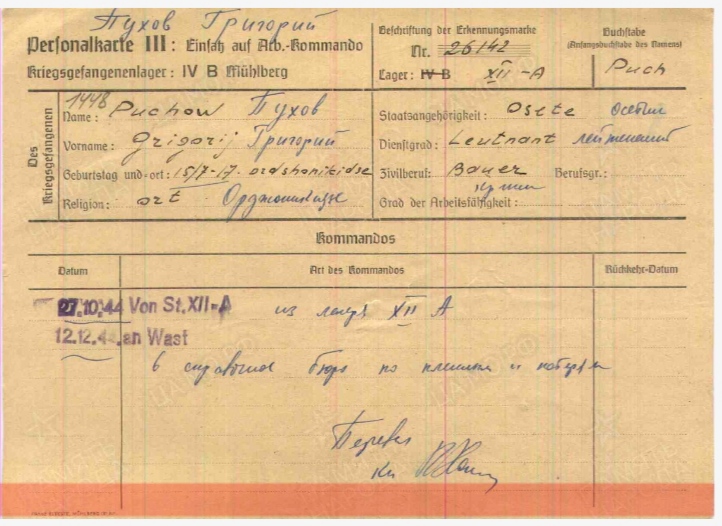 Пухов Григорий
Personalkarte III: Einsatz auf Arb.-Kommando
Kriegsgefangenenlager: IV B Mühlberg
Beschriftung der Erkennungsmarke
Nr. 26142
Lager: IV B XII-A
Buchstabe
(Anfangsbuchstabe des Namens)
Puch
Des Kriegsgefangenen
1448
Name: Puchow Пухов
Vorname: Grigorij Григорий
Geburtstag und -ort: 15/7-17. ordshonikidse
Religion: ort Орджоникидзе
Staatsangehörigkeit: Osete осетин
Dienstgrad: Leutnant лейтенант
Zivilberuf: Bauer Berufsgr.:
Grad der Arbeitsfähigkeit:
Kommandos
Datum Art des Kommandos Rückkehr-Datum
27.10.44 Von St.XII-A из лагеря XII A
12.12.4 an Wast
в справочное бюро по пленным и потерям
Перевел